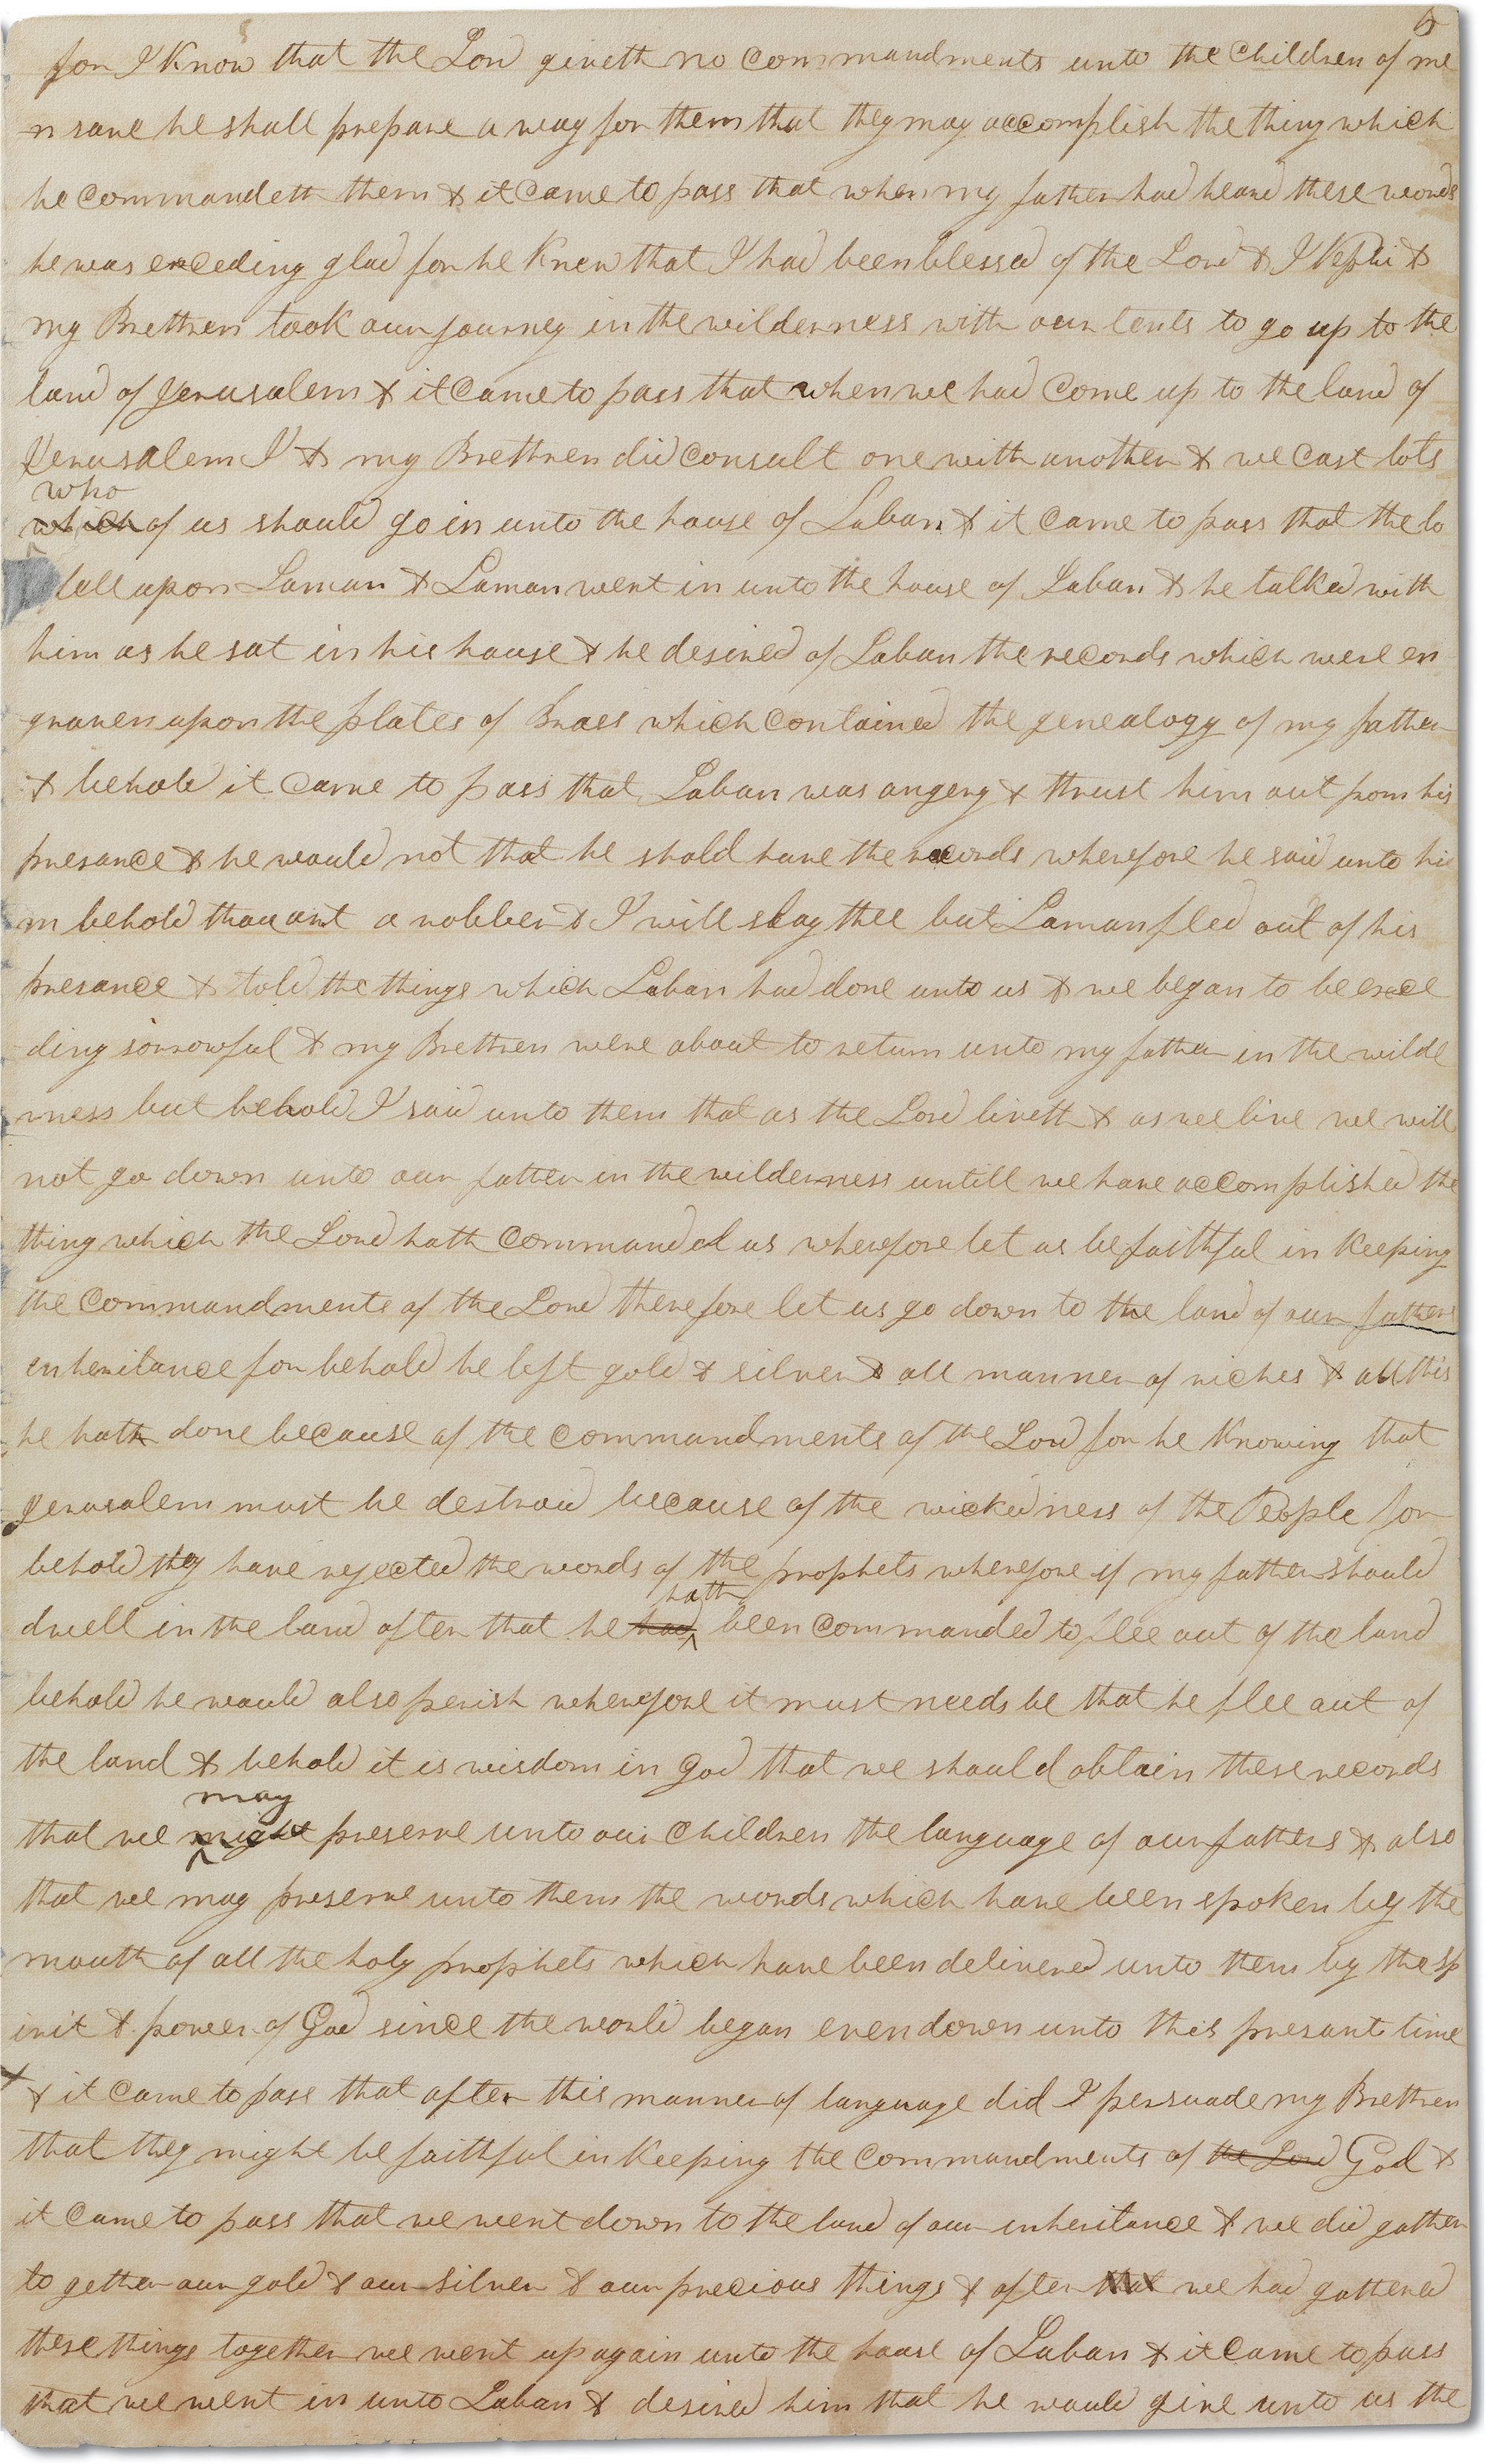 6
for I Know that the Lord giveth no commandments unto the Children of me
n save he shall prepare a way for them that they may accomplish the thing which
he commandeth them & it came to pass that when my father had heard these words
he was exceding glad for he Knew that I had been blessed of the Lord & I Nephi &
my Brethren took our journey in the wilderness with our tents to go up to the
land of Jerusalem & it came to pass that when we had come up to the land of
Jerusalem I & my Brethren did consult one with another & we cast lots
who
which of us should go in unto the house of Laban & it came to pass that the lo
fell upon Laman & Laman went in unto the house of Laban & he talked with
him as he sat in his house & he desired of Laban the records which were en
graven upon the plates of Brass which contained the genealogy of my father
& behold it came to pass that Laban was angery & thrust him out from his
presance & he would not that he shold have the records wherefore he said unto hi
m behold thou art a robber & I will slay thee but Laman fled out of his
presance & told the things which Laban had done unto us & we began to be exce
ding sorrowful & my Brethren were about to return unto my father in the wilde
rness but behold I said unto them that as the Lord liveth & as we live we will
not go down unto our father in the wilderness untill we have accomplished the
thing which the Lord hath commanded us wherefore let us be faithful in Keeping
the commandments of the Lord therefore let us go down to the land of our fathers
inheritance for behold he left gold & silver & all manner of riches & all this
he hath done because of the commandments of the Lord for he Knowing that
Jerusalem must be destroid because of the wickedness of the People for
behold they have rejected the words of the prophets wherefore if my father should
hath
dwell in the land after that he had been commanded to flee out of the land
behold he would also perish wherefore it must needs be that he flee out of
the land & behold it is wisdom in God that we should obtain these records
may
that we might preserve unto our children the language of our fathers & also
that we may preserve unto them the words which have been spoken by the
mouth of all the holy prophets which have been delivered unto them by the sp
irit & power of God since the world began even down unto this presant time
& it came to pass that after this manner of language did I persuade my Brethren
that they might be faithful in Keeping the commandments of the Lord God &
it came to pass that we went down to the land of our inheritance & we did gather
to gether our gold & our silver & our precious things & after that we had gathered
these things together we went up again unto the house of Laban & it came to pass
that we went in unto Laban & desired him that he would give unto us the